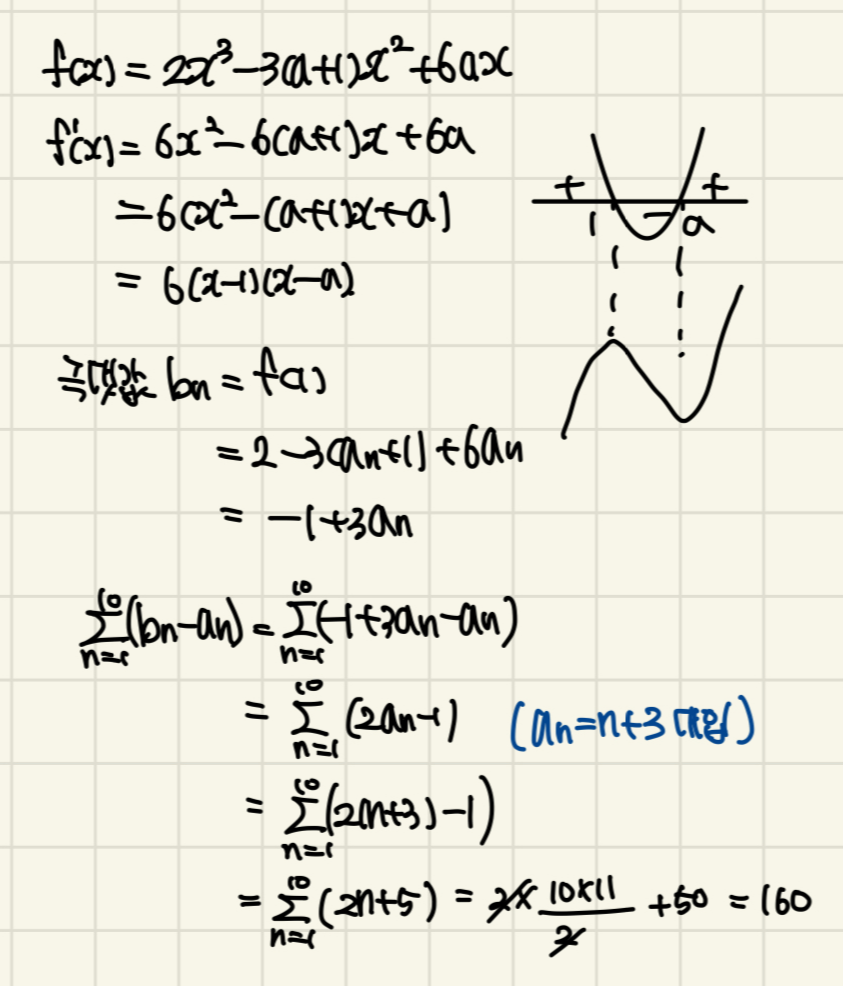 f(x) = 2x³-3(a+1)x²+6ax
f'(x) = 6x²-6(a+1)x+6a
= 6(x²-(a+1)x+a)
= 6(x-1)(x-a)
+ - +
1 a
극댓값 bn = f(1)
= 2-3(an+1)+6an
= -1+3an
∑_{n=1}^{10}(bn-an) = ∑_{n=1}^{10}(-1+3an-an)
= ∑_{n=1}^{10}(2an-1) (an=n+3 대입)
= ∑_{n=1}^{10}(2(n+3)-1)
= ∑_{n=1}^{10}(2n+5) = 2× 10×11/2 +50 = 160